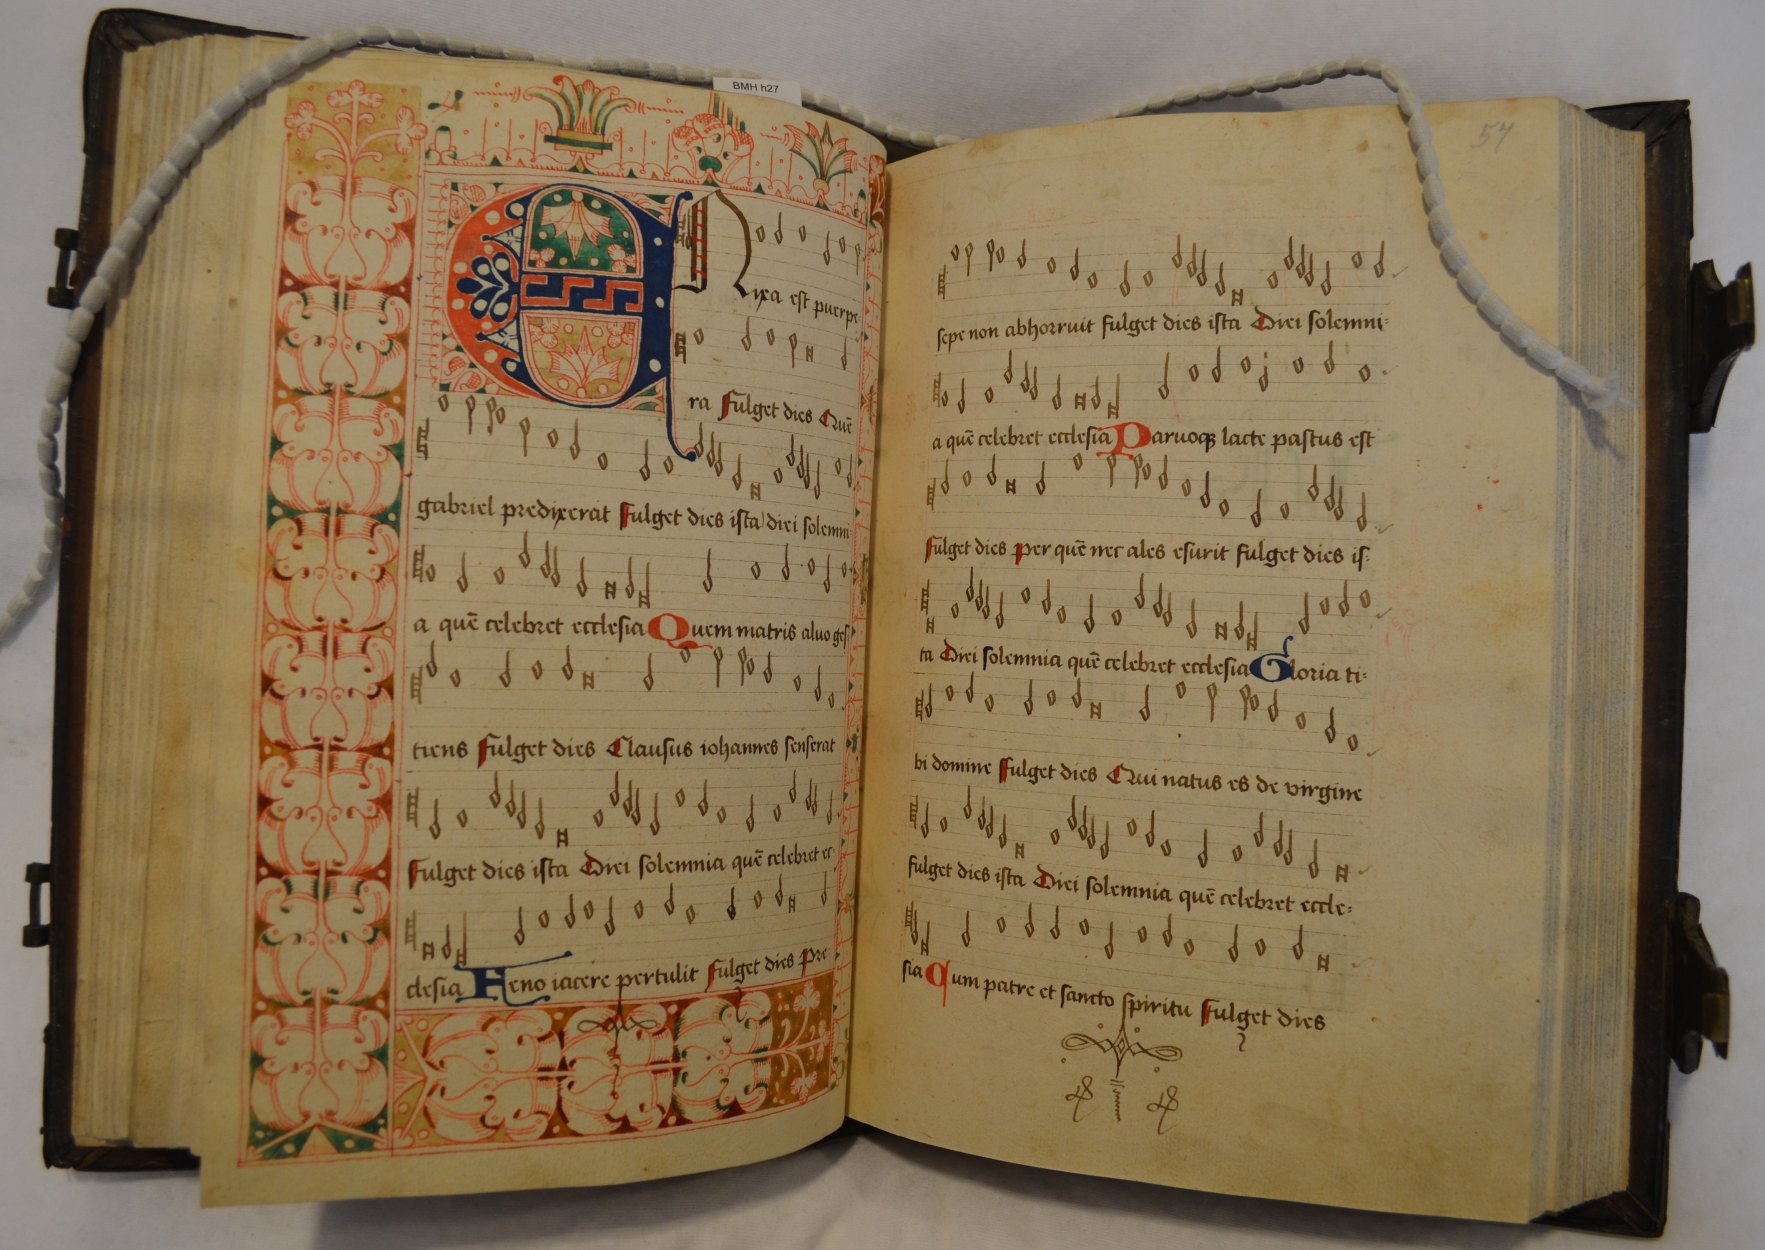 BMH h27
Enixa est puerpe-
ra Fulget dies Quē
gabriel predixerat Fulget dies ista diei solemni
a quē celebret ecclesia Quem matris aluo ges
tiens Fulget dies Clausus iohannes senserat
Fulget dies ista Diei solemnia quē celebret ec-
clesia Feno iacere pertulit Fulget dies Pre-
54
sepe non abhorruit fulget dies ista Diei solemni-
a quē celebret ecclesia Paruoqꝫ lacte pastus est
Fulget dies per quē nec ales esurit fulget dies is-
ta Diei solemnia quē celebret ecclesia Gloria ti-
bi domine Fulget dies Qui natus es de virgine
fulget dies ista Diei solemnia quē celebret eccle-
sia Cum patre et sancto spiritu Fulget dies